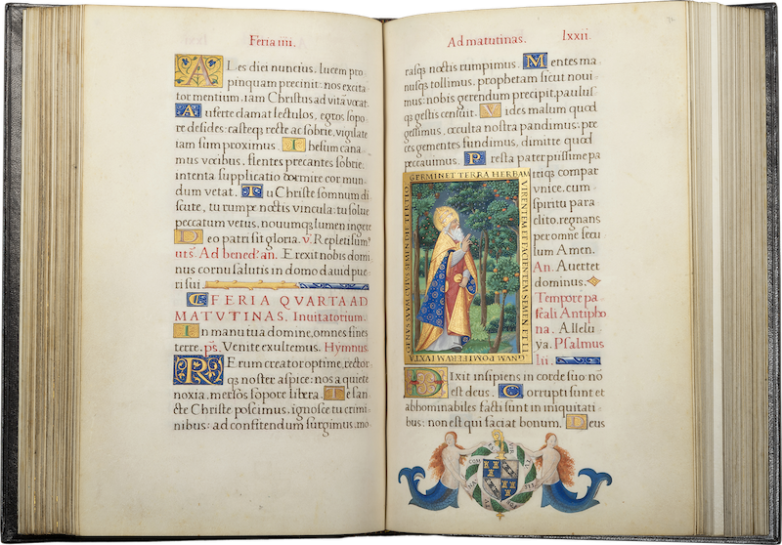 Feria iiii.
ALes diei nuncius, lucem pro
pinquam precinit: nos excita
tor mentium, iam Christus ad vitã vocat.
Auferte clamat lectulos, egros, sopo
re desides: castęqs recte ac sobrie, vigilate
iam sum proximus. Ihesum cana
mus vocibus, flentes precantes sobrie,
intenta supplicatio dormire cor mun
dum vetat. Tu Christe somnum di
scute, tu rumpe noctis vincula: tu solue
peccatum vetus, nouumqs lumen ingere
Deo patri sit gloria. v. Repleti sum9
urs̃. Ad bened' an. Erexit nobis domi
nus cornu salutis in domo dauid pue
ri sui
FERIA QVARTA AD
MATVTINAS. Inuitatorium.
In manu tua domine, omnes fines
terre. ps̃. Venite exultemus. Hymnus
Rerum creator optime, rector
qs noster aspice: nos a quiete
noxia, mersos sopore libera. Te san
cte Christe poscimus, ignosce tu crimi
nibus: ad confitendum surgimus, mo
Ad matutinas. lxxii.
rasqs noctis rumpimus. Mentes ma
nusqs tollimus, prophetam sicut noui
mus: nobis gerendum precipit, paulus
qs gestis censuit. Vides malum quod
gessimus, occulta nostra pandimus: pre
ces gementes fundimus, dimitte quod
peccauimus. Presta pater piissime pa
triqs compar
vnice, cum
spiritu para
clito, regnans
per omne secu
lum Amen.
An. Auertet
dominus.
Tempore pa
scali Antipho
na. Allelu
ya. Psalmus
lii.
GERMINET TERRA HERBAM
VIRENTEM ET FACIENTEM SEMEN ET LI
GNVM POMIFERVM IVXTA
GENVS SVVM
Dixit insipiens in corde suo nõ
est deus. Corrupti sunt et
abhominabiles facti sunt in iniquitati
bus: non est qui faciat bonum. Deus